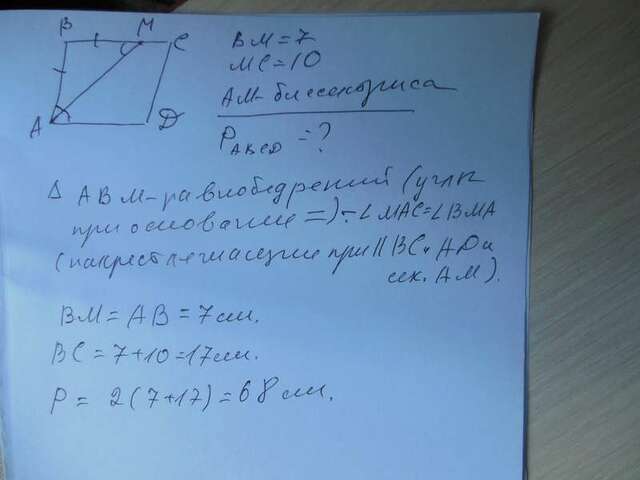 B M C
A D
BM = 7
MC = 10
AM - биссектриса
P ABCD = ?
Δ ABM - равнобедрений (углы
при основание =) ÷ ∠ MAC = ∠ BMA
(накрест лежащие при || BC и AD и
сек. AM).
BM = AB = 7 см.
BC = 7 + 10 = 17 см.
P = 2(7+17) = 68 см.